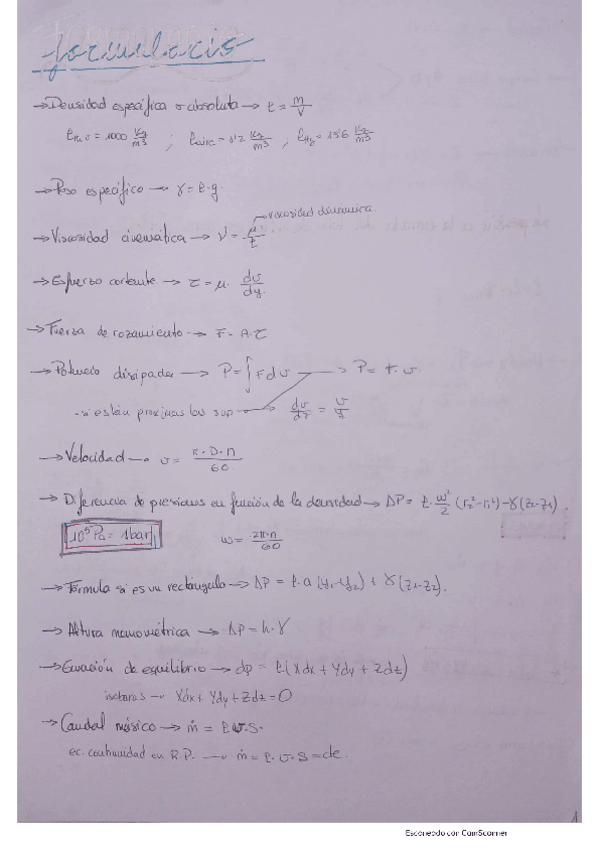 formulario
→ Densidad específica o absoluta → ρ = m/V
ρH2O = 1000 Kg/m3 ; ρaire = 1'2 Kg/m3 ; ρHg = 13'6 Kg/m3
→ Peso específico → γ = ρ·g.
viscosidad dinamica
→ Viscosidad cinemática → ν = μ/ρ
→ Esfuerzo cortante → τ = μ · dv/dy
→ Fuerza de rozamiento → F = A·τ
→ Potencia disipada → P = ∫ F dv → P = F·v.
- si están proximas las sup → dv/dr = v/r
→ Velocidad → v = π·D·n/60
→ Diferencia de presiones en función de la densidad → ΔP = ρ·ω²/2 (r2²-r1²) - γ(z2-z1).
10⁵Pa = 1bar
ω = 2π·n/60
→ Fórmula si es un rectángulo → ΔP = ρ·a (y1-y2) + γ(z1-z2).
→ Altura manométrica → ΔP = h·γ
→ Ecuación de equilibrio → dp = ρ(Xdx + Ydy + Zdz)
isobaras → Xdx + Ydy + Zdz = 0
→ Caudal másico → ṁ = ρ·v·S.
ec. continuidad en R.P. → ṁ = ρ·v·S = cte.
1
Escaneado con CamScanner